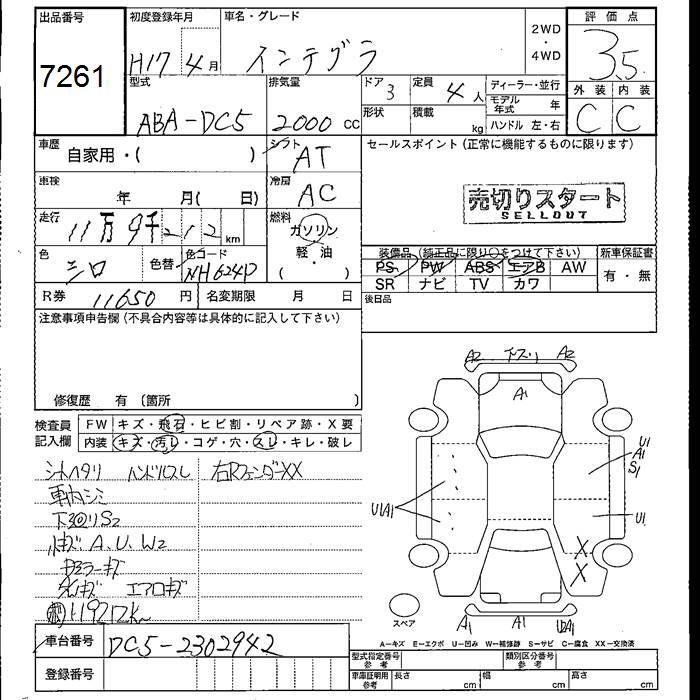 出品番号 初度登録年月 車名・グレード 評価点
7261 H17年 4月 インテグラ 2WD・4WD 3.5
型式 排気量 ドア 3 定員 4人 ディーラー・並行 外装 内装
ABA-DC5 2000cc 形状 積載 kg モデル年式 年 C C
ハンドル 左・右
車歴 自家用・( ) シフト AT セールスポイント(正常に機能するものに限ります)
車検 年 月( 日) 冷房 AC 売切りスタート
SELLOUT
走行 11万9千212km 燃料 ガソリン
軽・油
( )
色 シロ 色替 色コード NH624P 装備品(純正品に限り○をつけて下さい) 新車保証書
PS PW ABS エアB AW 有・無
SR ナビ TV カワ
R券 11650円 名変期限 月 日 後日品
注意事項申告欄(不具合内容等は具体的に記入して下さい)
修復歴 有(箇所 )
検査員記入欄 FW キズ・飛石・ヒビ割・リペア跡・X要
内装 キズ・汚レ・コゲ・穴・スレ・キレ・破レ
シートヘタリ ハンドルスレ 右RフェンダーXX
車内シミ
下回りS2
小キズ A.U.W2
エアロキズ
A2 A2
A1
U1A1
U1
A1
S1
U1
X
X
A1 A1 U2A1
スペア
A-キズ E-エクボ U-凹み W-補修跡 S-サビ C-腐食 XX-交換済
車台番号 DC5-2302942
登録番号
型式指定番号 参考 類別区分番号 参考
車庫証明用 参考 長さ cm 幅 cm 高さ cm